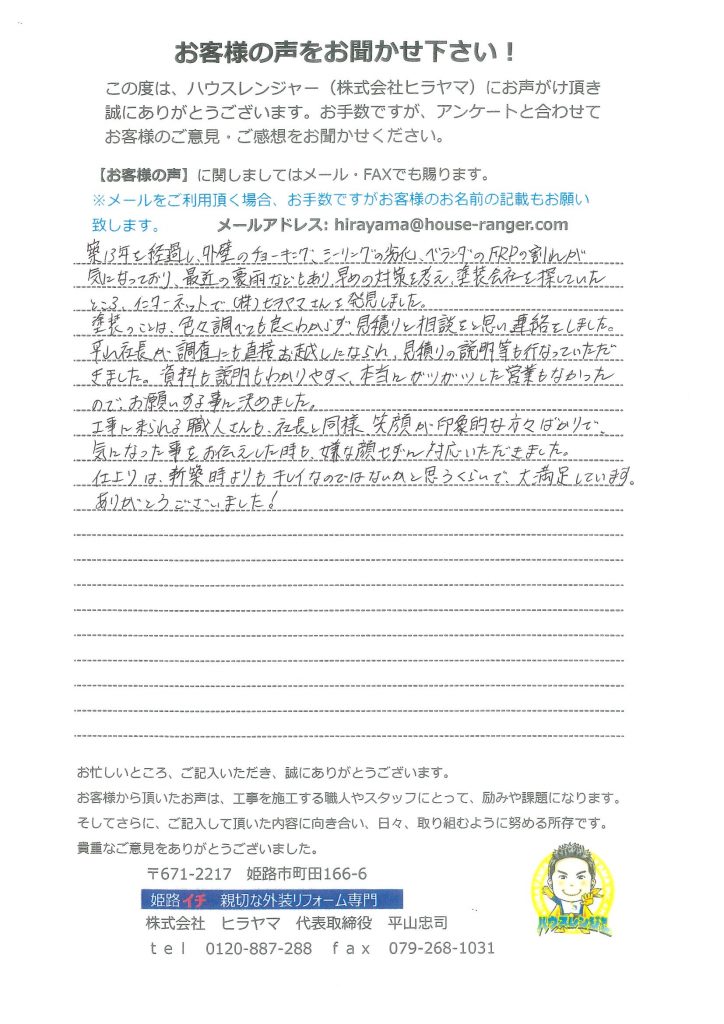 お客様の声をお聞かせ下さい！
この度は、ハウスレンジャー（株式会社ヒラヤマ）にお声がけ頂き
誠にありがとうございます。お手数ですが、アンケートと合わせて
お客様のご意見・ご感想をお聞かせください。
【お客様の声】に関しましてはメール・FAXでも賜ります。
※メールをご利用頂く場合、お手数ですがお客様のお名前の記載もお願い
致します。 メールアドレス: hirayama@house-ranger.com
築13年を経過し、外壁のチョーキング、シーリングの劣化、ベランダのFRPの割れが
気になっており、最近の豪雨などもあり、早めの対策を考え、塗装会社を探していた
ところ、インターネットで(株)ヒラヤマさんを発見しました。
塗装のことは、色々調べても良くわからず、見積りと相談をと思い連絡をしました。
平山社長が調査にも直接お越しになられ、見積りの説明等も行なっていただ
きました。資料も説明もわかりやすく、本当にガツガツした営業もなかった
ので、お願いする事に決めました。
工事に来られる職人さんも、社長と同様、笑顔が印象的な方々ばかりで、
気になった事をお伝えした時も、嫌な顔せずに対応いただきました。
仕上りは、新築時よりもキレイなのではないかと思うくらいで、大満足しています。
ありがとうございました!
お忙しいところ、ご記入いただき、誠にありがとうございます。
お客様から頂いたお声は、工事を施工する職人やスタッフにとって、励みや課題になります。
そしてさらに、ご記入して頂いた内容に向き合い、日々、取り組むように努める所存です。
貴重なご意見をありがとうございました。
〒671-2217 姫路市町田166-6
姫路イチ 親切な外装リフォーム専門
株式会社 ヒラヤマ 代表取締役 平山忠司
ｔｅｌ 0120-887-288 ｆａｘ 079-268-1031
ハウスレンジャー